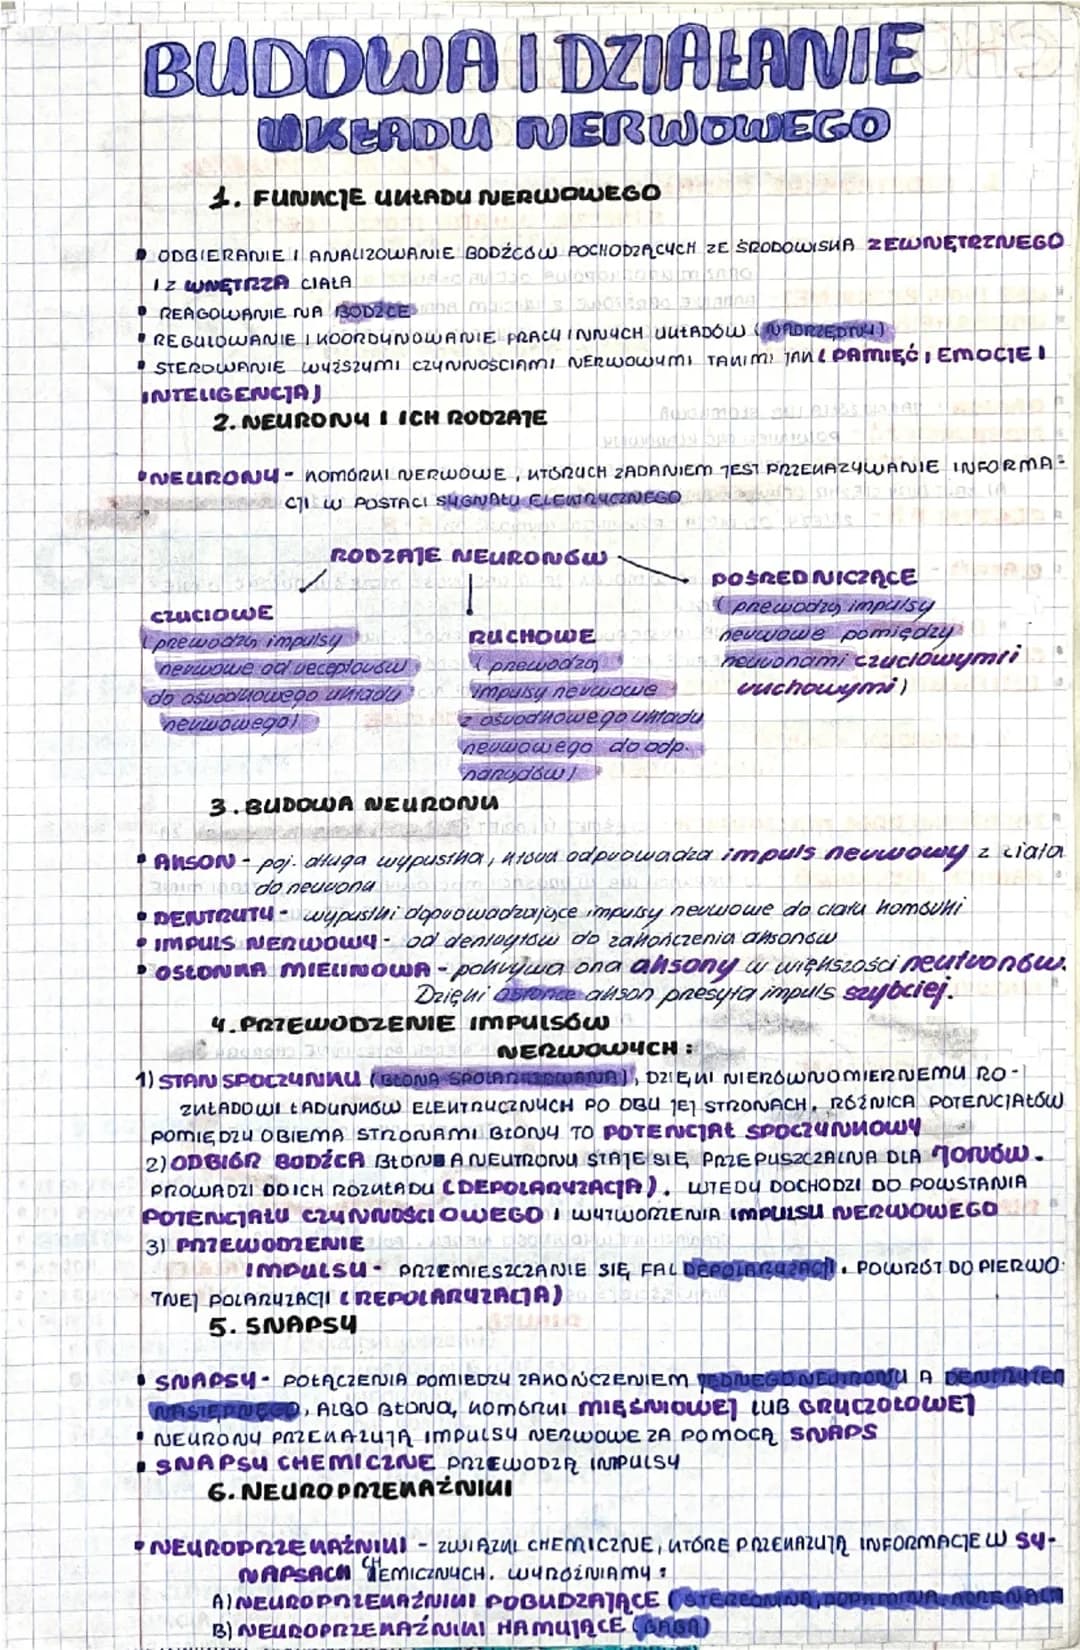 BUDOWA I DZIAŁANIE
UKŁADU NERWOWEGO
1. FUNKCJE UKŁADU NERWOWEGO
ODBIERANIE I ANALIZOWANIE BODŹCÓW POCHODZĄCYCH ZE ŚRODOWISKA ZEWNĘTRZNEGO
I Z WNĘTRZA CIAŁA
REAGOWANIE NA BODŹCE
REGULOWANIE I KOORDYNOWANIE PRACY INNYCH UKŁADÓW (NADRZĘDNY)
STEROWANIE WYŻSZYMI CZYNNOŚCIAMI NERWOWYMI TAKIMI JAK (PAMIĘĆ, EMOCJE I
INTELIGENCJA)
2. NEURONY I ICH RODZAJE
NEURONY - KOMÓRKI NERWOWE, KTÓRYCH ZADANIEM JEST PRZEKAZYWANIE INFORMA-
CJI W POSTACI SYGNAŁU ELEKTRYCZNEGO
RODZAJE NEURONÓW
CZUCIOWE
(przewodzą impulsy
nerwowe od receptorów
do ośrodkowego układu
nerwowego)
RUCHOWE
(przewodzą
impulsy nerwowe
z ośrodkowego układu
nerwowego do odp.
narządów)
POŚREDNICZĄCE
(przewodzą impulsy
nerwowe pomiędzy
neuronami czuciowymi i
ruchowymi)
3. BUDOWA NEURONU
AKSON - poj. długa wypustka, która odprowadza impuls nerwowy z ciała
do neurona
DENTRYTY - wypustki doprowadzające impulsy nerwowe do ciału komórki
IMPULS NERWOWY - od dentrytów do zakończenia aksonów
OSŁONKA MIELINOWA - pokrywa ona aksony w większości neutronów.
Dzięki osłonce akson przesyła impuls szybciej.
4. PRZEWODZENIE IMPULSÓW
NERWOWYCH:
1) STAN SPOCZYNKU (BŁONA SPOLARYZOWANA), DZIĘKI NIERÓWNOMIERNEMU RO-
ZKŁADOWI ŁADUNKÓW ELEKTRYCZNYCH PO OBU JEJ STRONACH. RÓŻNICA POTENCJAŁÓW
POMIĘDZY OBIEMA STRONAMI BŁONY TO POTENCJAŁ SPOCZYNKOWY
2) ODBIÓR BODŹCA BŁONA NEUTRONU STAJE SIĘ PRZEPUSZCZALNA DLA JONÓW.
PROWADZI DO ICH ROZKŁADU (DEPOLARYZACJA). WTEDY DOCHODZI DO POWSTANIA
POTENCJAŁU CZYNNOŚCIOWEGO I WYTWORZENIA IMPULSU NERWOWEGO
3) PRZEWODZENIE
IMPULSU - PRZEMIESZCZANIE SIĘ FAL DEPOLARYZACJI. POWRÓT DO PIERWO
TNEJ POLARYZACJI (REPOLARYZACJA)
5. SNAPSY
SNAPSY - POŁĄCZENIA POMIEDZY ZAKOŃCZENIEM JEDNEGO NEUTRONU A DENTRYTEM
NASTĘPNEGO, ALBO BŁONĄ, KOMÓRKI MIĘŚNIOWEJ LUB GRUCZOŁOWEJ
NEURONY PRZEKAZUJĄ IMPULSY NERWOWE ZA POMOCĄ SNAPS
SNAPSY CHEMICZNE PRZEWODZĄ IMPULSY
6. NEUROPRZEKAŹNIKI
NEUROPRZEKAŹNIKI - ZWIĄZKI CHEMICZNE, KTÓRE PRZEKAZUJĄ INFORMACJE W SY-
NAPSACH CHEMICZNYCH. WYRÓŻNIAMY:
A) NEUROPRZEKAŹNIKI POBUDZAJĄCE (STEREONINA, DOPAMINA, ADRENALI
B) NEUROPRZEKAŹNIKI HAMUJĄCE (GABA)